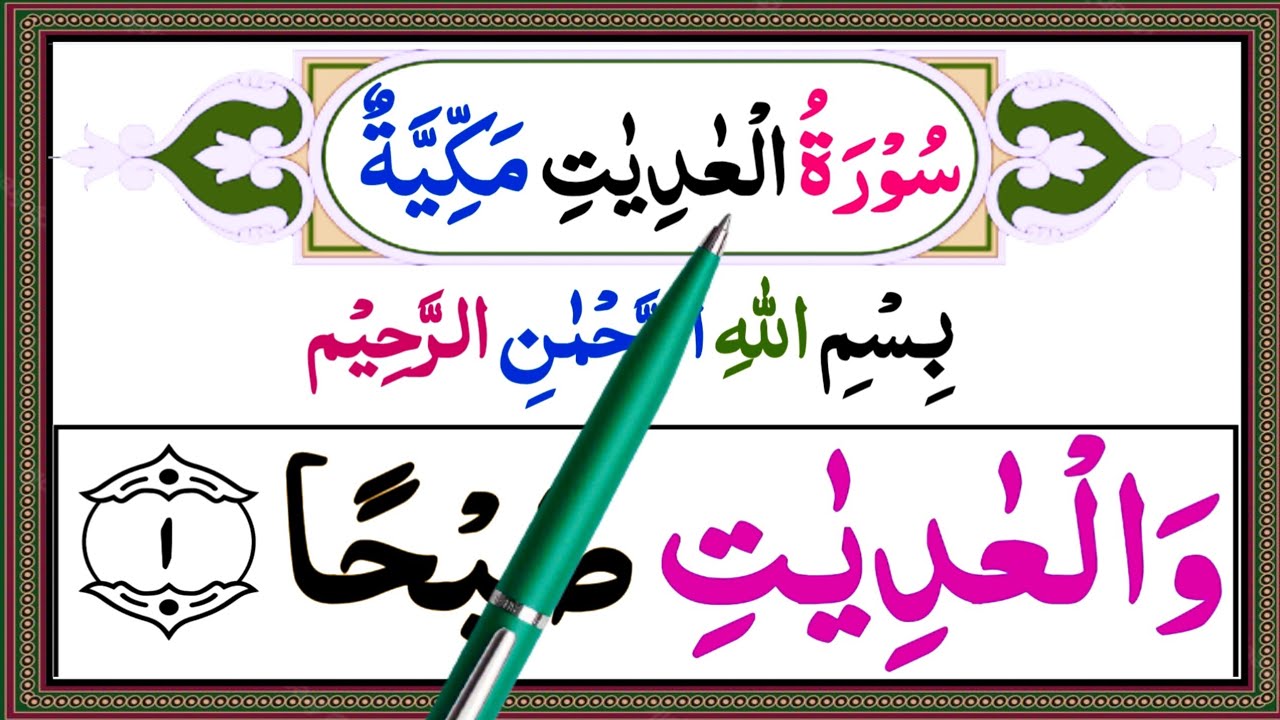 سُوْرَةُ الْعٰدِيٰتِ مَكِّيَّةٌ
بِسْمِ اللّٰهِ الرَّحْمٰنِ الرَّحِيْم
وَالْعٰدِيٰتِ ضَبْحًا ١